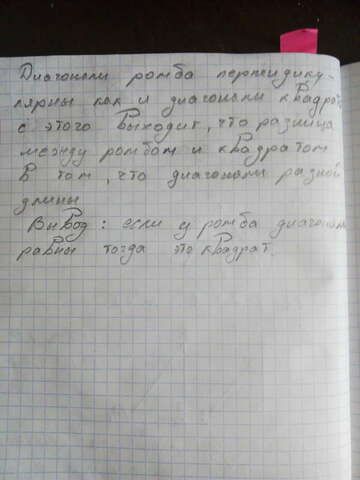 Диагонали ромба перпендику-
лярны как и диагонали квадрата
с этого выходит, что разница
между ромбом и квадратом
в том, что диагонали разной
длины
Вывод: если у ромба диагонали
равны тогда это квадрат.